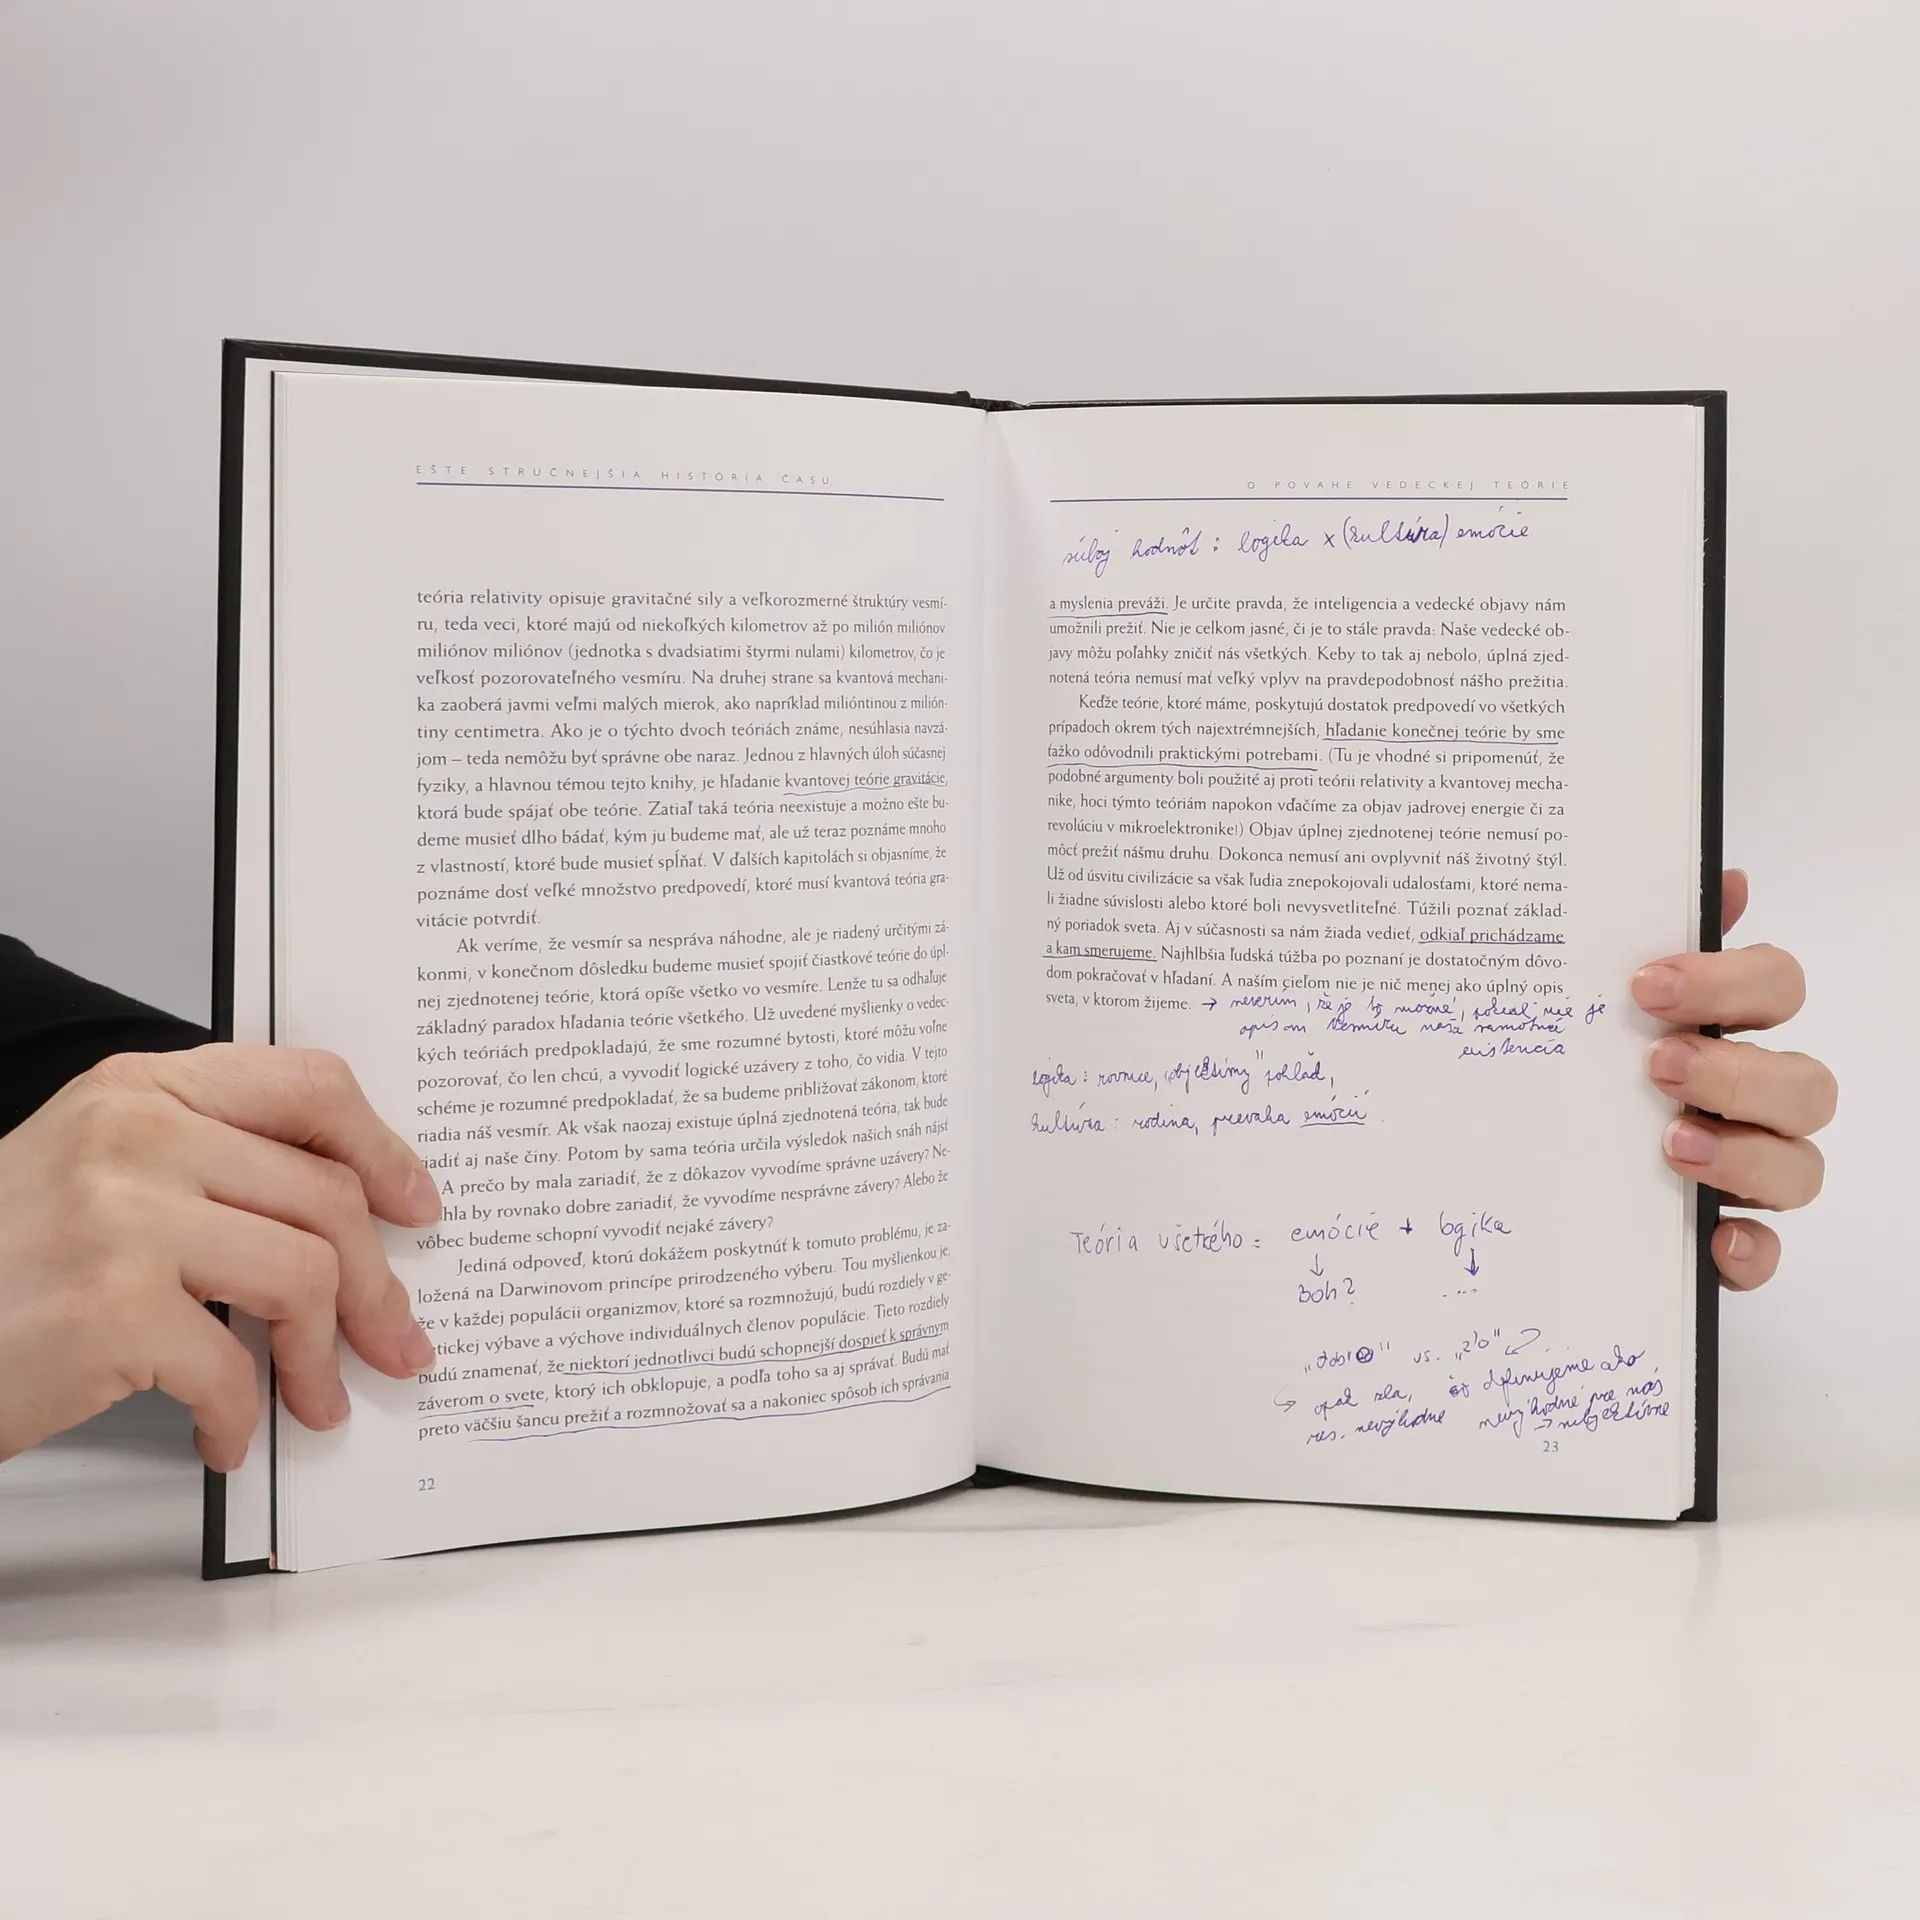 EŠTE STRUČNEJŠIA HISTÓRIA ČASU
teória relativity opisuje gravitačné sily a veľkorozmerné štruktúry vesmí-
ru, teda veci, ktoré majú od niekoľkých kilometrov až po milión miliónov
miliónov miliónov (jednotka s dvadsiatimi štyrmi nulami) kilometrov, čo je
veľkosť pozorovateľného vesmíru. Na druhej strane sa kvantová mechani-
ka zaoberá javmi veľmi malých mierok, ako napríklad milióntinou z milión-
tiny centimetra. Ako je o týchto dvoch teóriách známe, nesúhlasia navzá-
jom – teda nemôžu byť správne obe naraz. Jednou z hlavných úloh súčasnej
fyziky, a hlavnou témou tejto knihy, je hľadanie kvantovej teórie gravitácie,
ktorá bude spájať obe teórie. Zatiaľ taká teória neexistuje a možno ešte bu-
deme musieť dlho bádať, kým ju budeme mať, ale už teraz poznáme mnoho
z vlastností, ktoré bude musieť spĺňať. V ďalších kapitolách si objasníme, že
poznáme dosť veľké množstvo predpovedí, ktoré musí kvantová teória gra-
vitácie potvrdiť.
Ak veríme, že vesmír sa nespráva náhodne, ale je riadený určitými zá-
konmi, v konečnom dôsledku budeme musieť spojiť čiastkové teórie do úpl-
nej zjednotenej teórie, ktorá opíše všetko vo vesmíre. Lenže tu sa odhaľuje
základný paradox hľadania teórie všetkého. Už uvedené myšlienky o vedec-
kých teóriách predpokladajú, že sme rozumné bytosti, ktoré môžu voľne
pozorovať, čo len chcú, a vyvodiť logické uzávery z toho, čo vidia. V tejto
schéme je rozumné predpokladať, že sa budeme približovať zákonom, ktoré
riadia náš vesmír. Ak však naozaj existuje úplná zjednotená teória, tak bude
riadiť aj naše činy. Potom by sama teória určila výsledok našich snáh nájsť
A prečo by mala zariadiť, že z dôkazov vyvodíme správne uzávery? Ne-
hla by rovnako dobre zariadiť, že vyvodíme nesprávne závery? Alebo že
vôbec budeme schopní vyvodiť nejaké závery?
Jediná odpoveď, ktorú dokážem poskytnúť k tomuto problému, je za-
ložená na Darwinovom princípe prirodzeného výberu. Tou myšlienkou je,
že v každej populácii organizmov, ktoré sa rozmnožujú, budú rozdiely v ge-
tickej výbave a výchove individuálnych členov populácie. Tieto rozdiely
budú znamenať, že niektorí jednotlivci budú schopnejší dospieť k správnym
záverom o svete, ktorý ich obklopuje, a podľa toho sa aj správať. Budú mať
preto väčšiu šancu prežiť a rozmnožovať sa a nakoniec spôsob ich správania
22
O POVAHE VEDECKEJ TEÓRIE
súboj hodnôt : logika x (kultúra) emócie
a myslenia preváži. Je určite pravda, že inteligencia a vedecké objavy nám
umožnili prežiť. Nie je celkom jasné, či je to stále pravda: Naše vedecké ob-
javy môžu poľahky zničiť nás všetkých. Keby to tak aj nebolo, úplná zjed-
notená teória nemusí mať veľký vplyv na pravdepodobnosť nášho prežitia.
Keďže teórie, ktoré máme, poskytujú dostatok predpovedí vo všetkých
prípadoch okrem tých najextrémnejších, hľadanie konečnej teórie by sme
ťažko odôvodnili praktickými potrebami. (Tu je vhodné si pripomenúť, že
podobné argumenty boli použité aj proti teórii relativity a kvantovej mecha-
nike, hoci týmto teóriám napokon vďačíme za objav jadrovej energie či za
revolúciu v mikroelektronike!) Objav úplnej zjednotenej teórie nemusí po-
môcť prežiť nášmu druhu. Dokonca nemusí ani ovplyvniť náš životný štýl.
Už od úsvitu civilizácie sa však ľudia znepokojovali udalosťami, ktoré nema-
li žiadne súvislosti alebo ktoré boli nevysvetliteľné. Túžili poznať základ-
ný poriadok sveta. Aj v súčasnosti sa nám žiada vedieť, odkiaľ prichádzame
a kam smerujeme. Najhlbšia ľudská túžba po poznaní je dostatočným dôvo-
dom pokračovať v hľadaní. A naším cieľom nie je nič menej ako úplný opis
sveta, v ktorom žijeme. → neverím, že je to možné, pokiaľ nie je
opisom vesmíru naša samotná
existencia
logika : rovnice, "objektívny" pohľad,
kultúra : rodina, prevaha emócií.
Teória všetkého = emócie + logika
↓ ↓
Boh? ...
"dobro" vs. "zlo"
opak zla, definujeme ako
res. nevýhodne nevýhodné pre nás
→ subjektívne
23